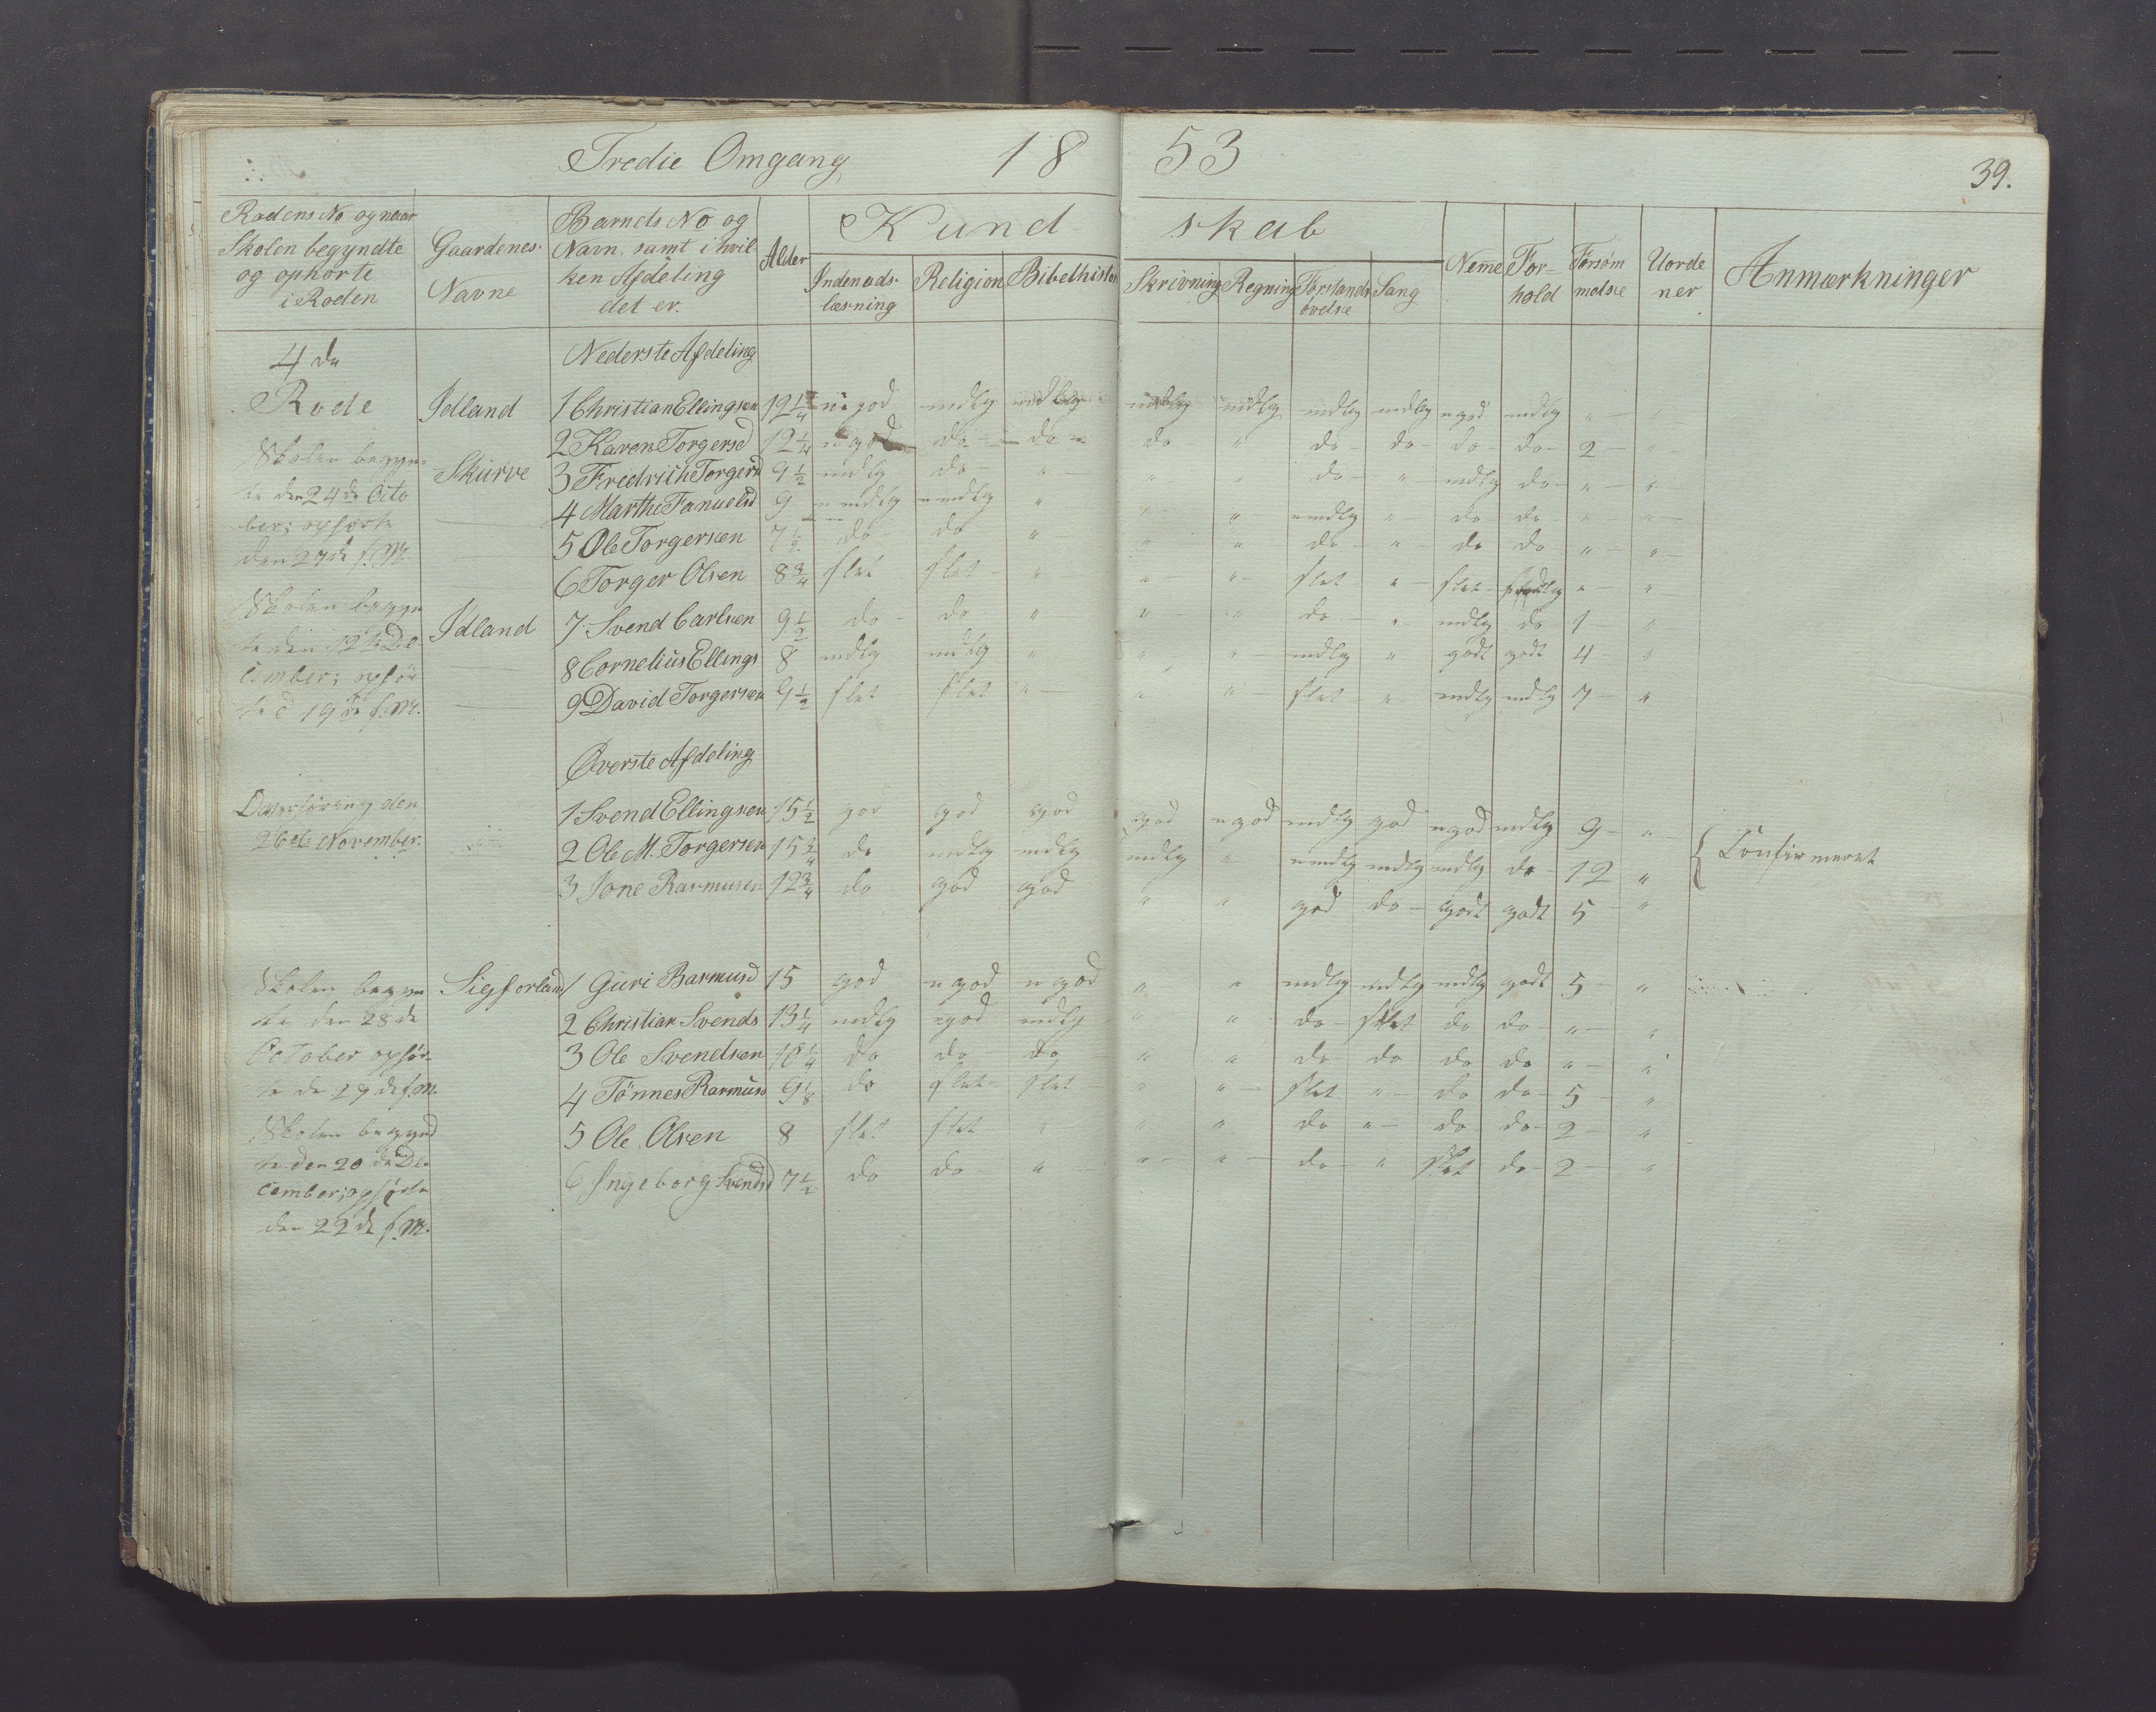 Tredie Omgang 18 53
39.
Rodens No og naar Skolen begyndte og ophørte i Roden
Gaardenes Navne
Barnets No og Navn, samt i hvilken Afdeling det er.
Alder
Kund skab
Indenads-læsning Religion Bibelhistori Skrivning Regning Forstands øvelse Sang
Nem̅e For-hold Forsøm melse Uorde ner Anmærkninger
4de Nederste Afdeling
Rode Idland 1 Christian Ellingsen 12 1/4 ngod mdlg mdlg mdlg mdlg mdlg mdlg ngod mdlg " "
2 Karen Torgersd 12 1/4 ngod do do do " do do do do 2 "
Skolen begyn-
Skurve 3 Fredrich Torgers 9 1/2 mdlg do " " " do " mdlg do " "
te den 24de Octo
4 Marthe Fanuelsd 9 nmdlg nmdlg " " " nmdlg " do do " "
ber; ophørte
5 Ole Torgersen 7 1/2 do do " " " do " do do " "
den 27de s. M.
6 Torger Olsen 8 3/4 slet slet " " " slet " slet mdlg " "
Skolen begyn
Idland 7 Svend Carlsen 9 1/2 do do " " " do " mdlg do 1 "
te den 12te De-
8 Cornelius Ellings 8 mdlg mdlg " " " mdlg " godt godt 4 "
cember; ophør
9 David Torgersen 9 1/2 slet slet " " " slet " mdlg mdlg 7 "
te d 19de s. M.
Øverste Afdeling
Overhøring den
1 Svend Ellingsen 15 1/2 god god god god ngod mdlg god ngod mdlg 9 "
26de November.
2 Ole M. Torgersen 15 3/4 do mdlg mdlg mdlg " nmdlg mdlg mdlg do 12 "
{ Confirmeret
3 Jone Rasmusen 12 3/4 do god god " " god do godt godt 5 "
Skolen begyn Sigforland 1 Guri Rasmusd 15 god ngod ngod " " mdlg mdlg mdlg godt 5 "
te den 28de
2 Christian Svends 13 1/4 mdlg ngod mdlg " " do slet do do " "
October ophør-
3 Ole Svendsen 10 1/4 do do do " " do do do do " "
te de 29de s. M.
4 Tønnes Rasmuss 9 1/8 do slet slet " " slet " do do 5 "
Skolen begynd
5 Ole Olsen 8 slet slet " " " do " do do 2 "
te den 20de De-
6 Ingeborg Svendsd 7 1/2 do do " " " do " slet do 2 "
cember; ophørte
den 22de s. M.